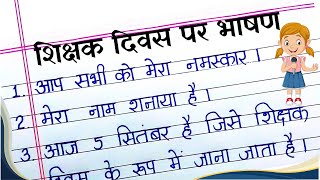 शिक्षक दिवस पर भाषण
1. आप सभी को मेरा नमस्कार ।
2. मेरा नाम शनाया है ।
3. आज 5 सितंबर है जिसे शिक्षक
दिवस के रूप में जाना जाता है ।